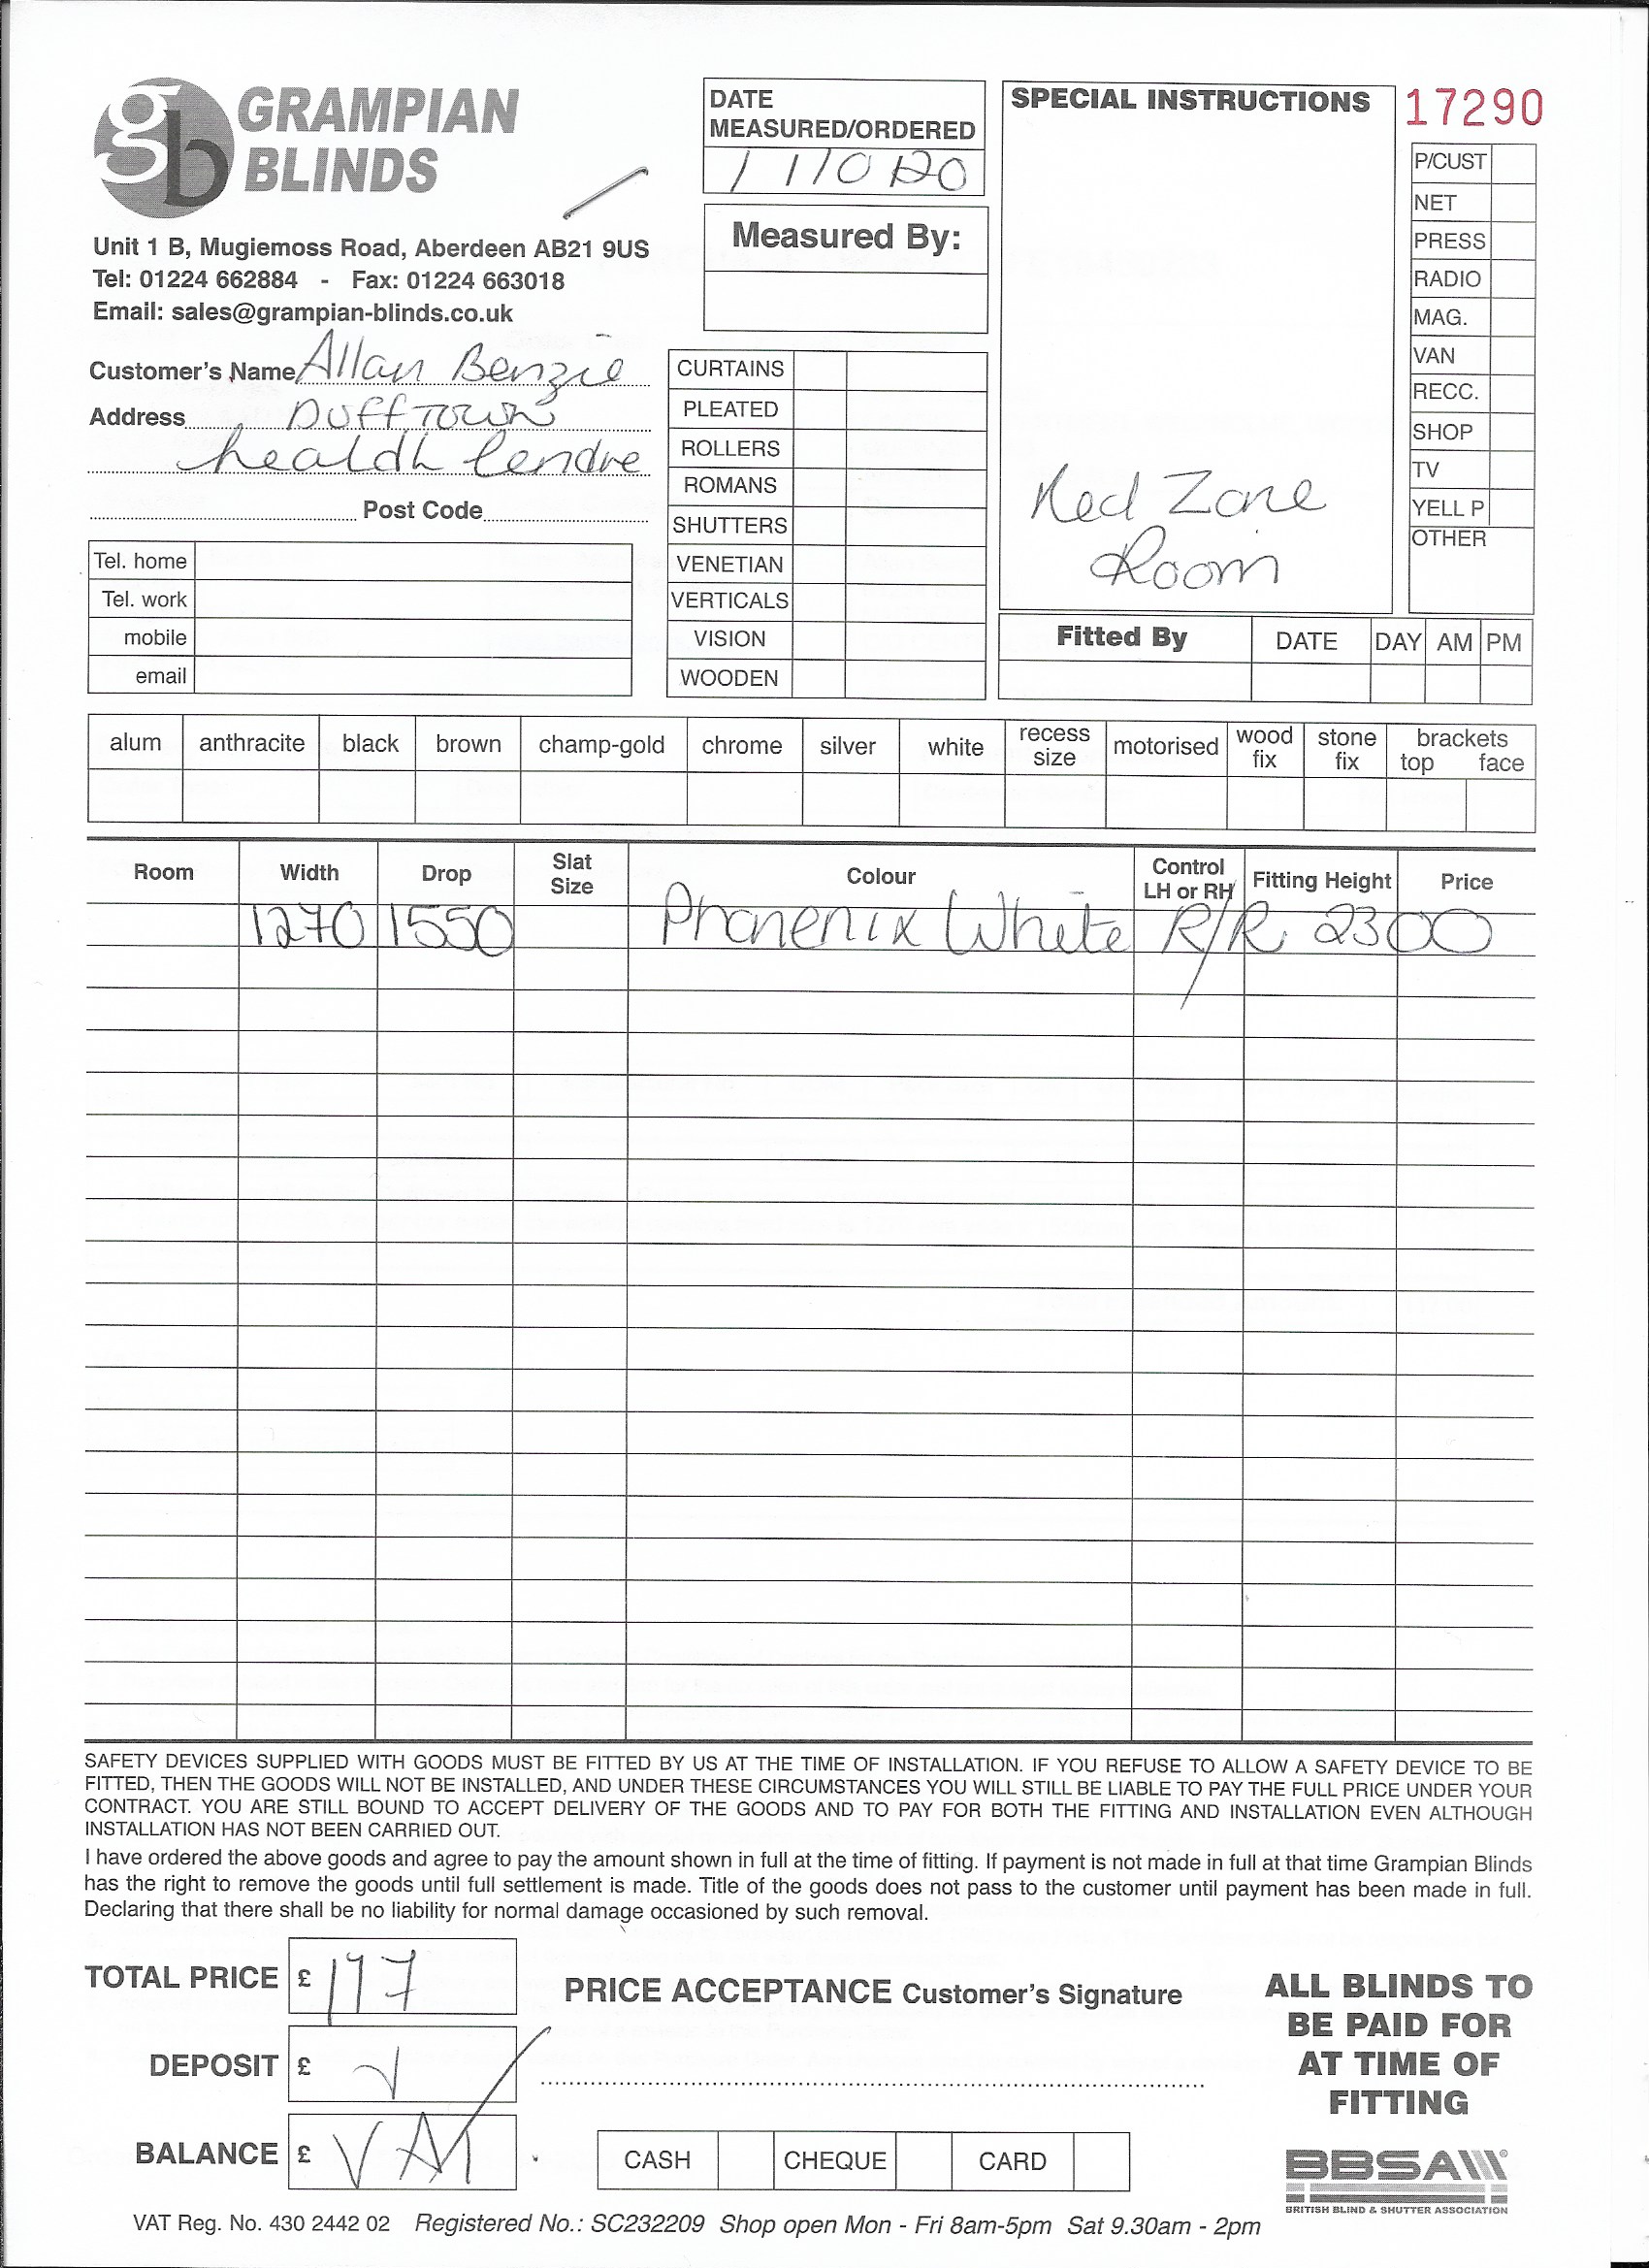 gb GRAMPIAN
BLINDS
Unit 1 B, Mugiemoss Road, Aberdeen AB21 9US
Tel: 01224 662884 - Fax: 01224 663018
Email: sales@grampian-blinds.co.uk
Customer's Name Allan Benzie
Address Dufftown
health Centre
Post Code
Tel. home
Tel. work
mobile
email
DATE
MEASURED/ORDERED
1/10/20
Measured By:
CURTAINS
PLEATED
ROLLERS
ROMANS
SHUTTERS
VENETIAN
VERTICALS
VISION
WOODEN
SPECIAL INSTRUCTIONS
Red Zone
Room
17290
P/CUST
NET
PRESS
RADIO
MAG.
VAN
RECC.
SHOP
TV
YELL P
OTHER
Fitted By DATE DAY AM PM
alum anthracite black brown champ-gold chrome silver white recess size motorised wood fix stone fix brackets top face
Room Width Drop Slat Size Colour Control LH or RH Fitting Height Price
1270 1550 Phonenix White R/R 2300
SAFETY DEVICES SUPPLIED WITH GOODS MUST BE FITTED BY US AT THE TIME OF INSTALLATION. IF YOU REFUSE TO ALLOW A SAFETY DEVICE TO BE
FITTED, THEN THE GOODS WILL NOT BE INSTALLED, AND UNDER THESE CIRCUMSTANCES YOU WILL STILL BE LIABLE TO PAY THE FULL PRICE UNDER YOUR
CONTRACT. YOU ARE STILL BOUND TO ACCEPT DELIVERY OF THE GOODS AND TO PAY FOR BOTH THE FITTING AND INSTALLATION EVEN ALTHOUGH
INSTALLATION HAS NOT BEEN CARRIED OUT.
I have ordered the above goods and agree to pay the amount shown in full at the time of fitting. If payment is not made in full at that time Grampian Blinds
has the right to remove the goods until full settlement is made. Title of the goods does not pass to the customer until payment has been made in full.
Declaring that there shall be no liability for normal damage occasioned by such removal.
TOTAL PRICE £
DEPOSIT £
BALANCE £ VAT
PRICE ACCEPTANCE Customer's Signature
CASH CHEQUE CARD
ALL BLINDS TO
BE PAID FOR
AT TIME OF
FITTING
BBSA
BRITISH BLIND & SHUTTER ASSOCIATION
VAT Reg. No. 430 2442 02 Registered No.: SC232209 Shop open Mon - Fri 8am-5pm Sat 9.30am - 2pm